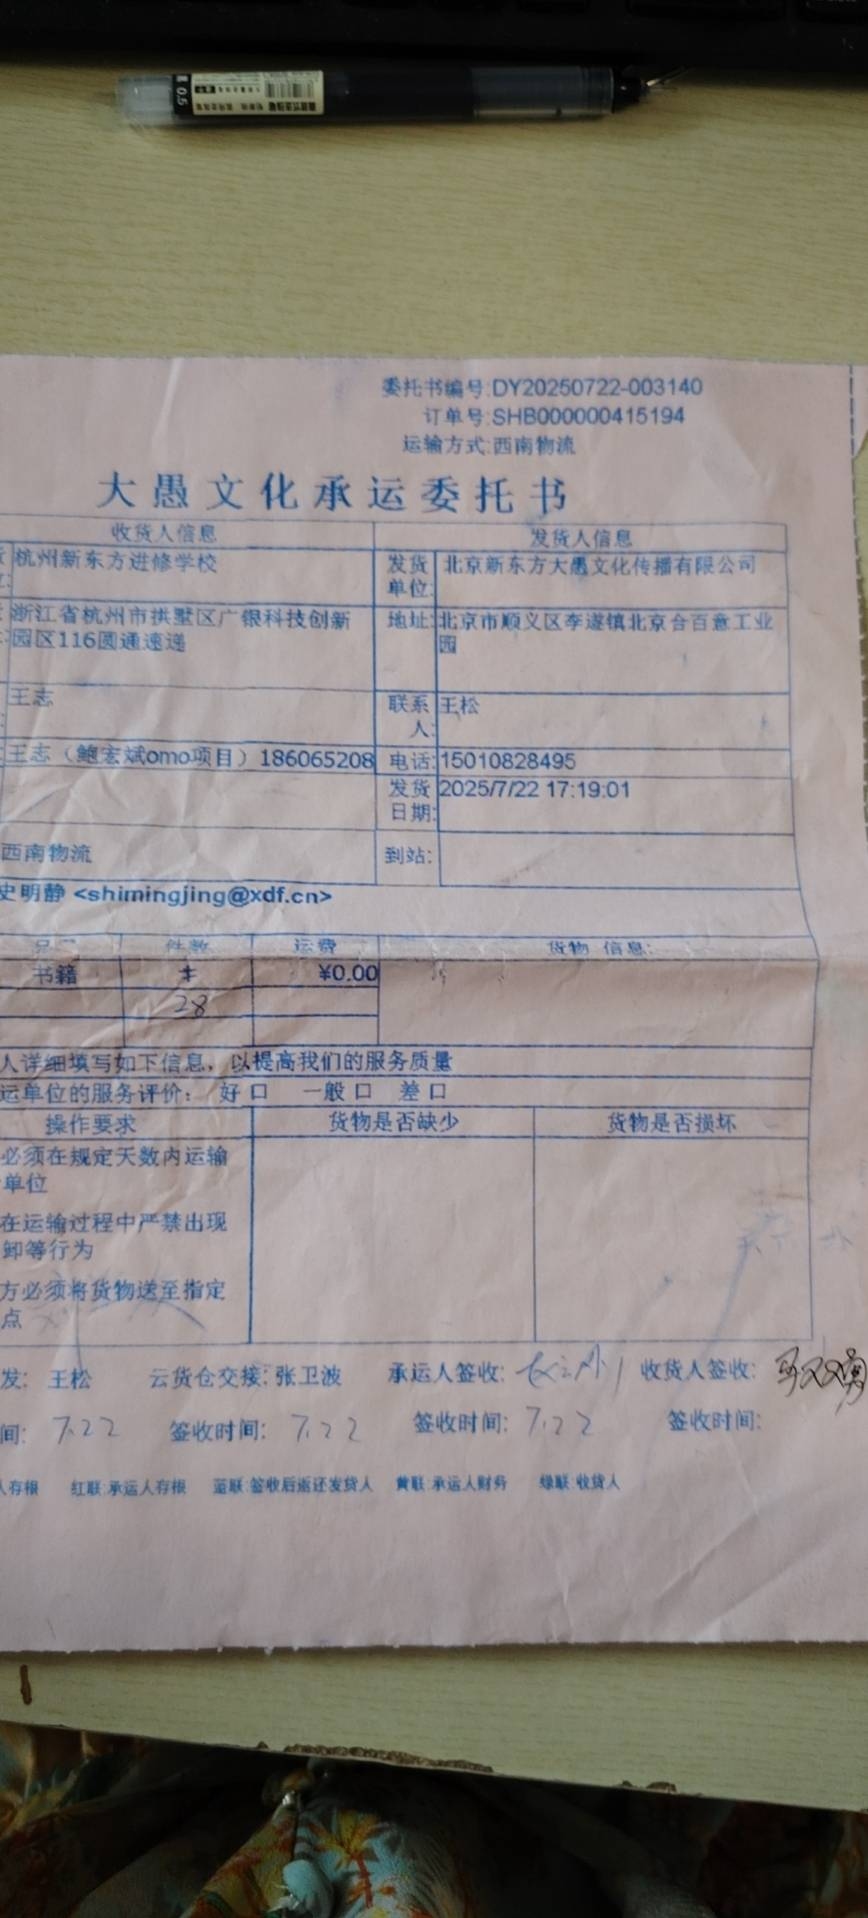 0.5
委托书编号:DY20250722-003140
订单号:SHB000000415194
运输方式:西南物流
大愚文化承运委托书
收货人信息 发货人信息
杭州新东方进修学校 发货单位: 北京新东方大愚文化传播有限公司
浙江省杭州市拱墅区广银科技创新 地址: 北京市顺义区李遂镇北京合百意工业
园区116圆通速递 园
王志 联系人: 王松
王志（鲍宏斌omo项目）186065208 电话: 15010828495
发货日期: 2025/7/22 17:19:01
西南物流 到站:
史明静 <shimingjing@xdf.cn>
件数 运费 货物 信息:
书籍 ¥0.00
28
人详细填写如下信息，以提高我们的服务质量
运单位的服务评价: 好 口 一般 口 差 口
操作要求 货物是否缺少 货物是否损坏
必须在规定天数内运输
单位
在运输过程中严禁出现
卸等行为
方必须将货物送至指定
点
发: 王松 云货仓交接: 张卫波 承运人签收: 收货人签收:
间: 7.22 签收时间: 7.22 签收时间: 7.22 签收时间:
人存根 红联:承运人存根 蓝联:签收后返还发货人 黄联:承运人财务 绿联:收货人